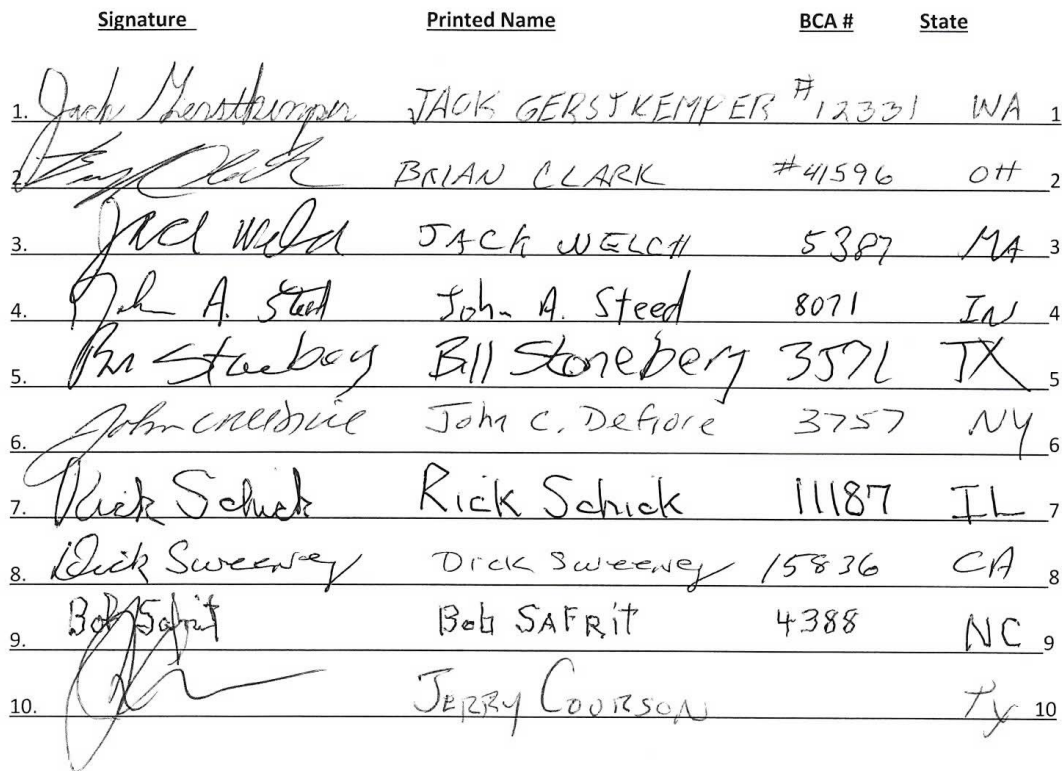 Signature Printed Name BCA # State
1. Jack Gerstkemper JACK GERSTKEMPER #12331 WA 1
2. BRIAN CLARK #41596 OH 2
3. Jack Welch JACK WELCH 5387 MA 3
4. John A. Steed John A. Steed 8071 IN 4
5. Bill Stoneberg 3571 TX 5
6. John C. Defiore 3757 NY 6
7. Rick Schick Rick Schick 11187 IL 7
8. Dick Sweeney Dick Sweeney 15836 CA 8
9. Bob Safrit Bob SAFRiT 4388 NC 9
10. JERRY COURSON 10